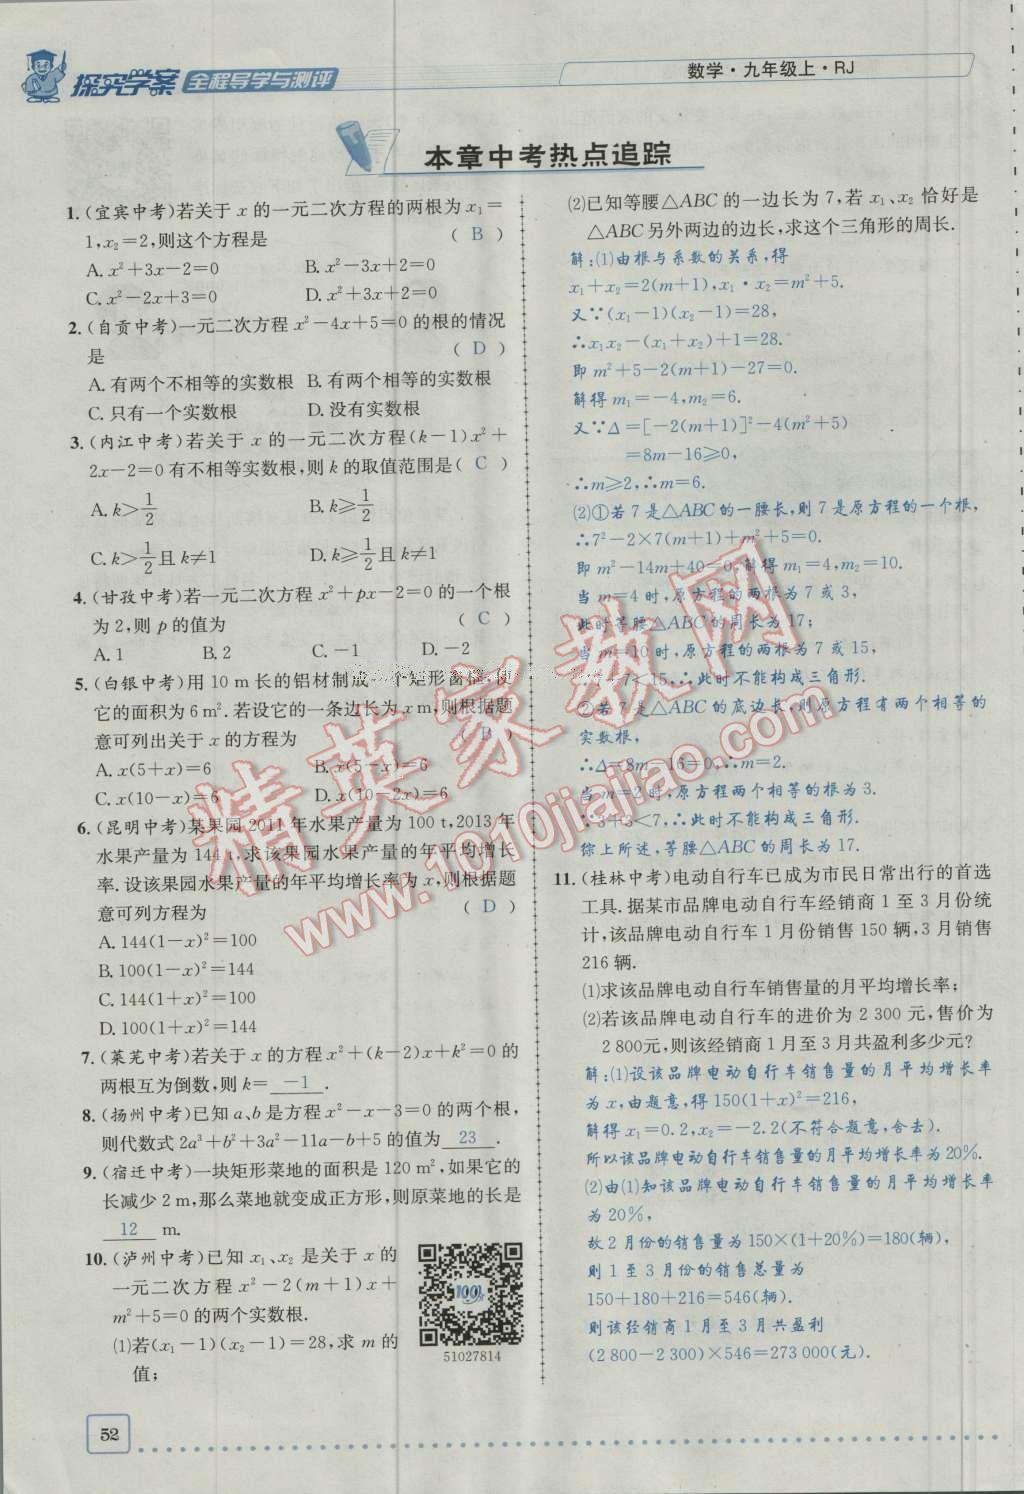 探究学案 全程导学与测评
数学·九年级上·RJ
本章中考热点追踪
1.(宜宾中考)若关于 x 的一元二次方程的两根为 x₁=
1,x₂=2,则这个方程是 ( B )
A. x²+3x-2=0 B. x²-3x+2=0
C. x²-2x+3=0 D. x²+3x+2=0
2.(自贡中考)一元二次方程 x²-4x+5=0 的根的情况
是 ( D )
A. 有两个不相等的实数根 B. 有两个相等的实数根
C. 只有一个实数根 D. 没有实数根
3.(内江中考)若关于 x 的一元二次方程(k-1)x²+
2x-2=0 有不相等实数根,则 k 的取值范围是( C )
A. k>1/2 B. k≥1/2
C. k>1/2且 k≠1 D. k≥1/2且 k≠1
4.(甘孜中考)若一元二次方程 x²+px-2=0 的一个根
为 2,则 p 的值为 ( C )
A. 1 B. 2 C. -1 D. -2
5.(白银中考)用 10 m 长的铝材制成一个矩形窗框,使
它的面积为 6 m².若设它的一条边长为 x m,则根据题
意可列出关于 x 的方程为 ( B )
A. x(5+x)=6 B. x(5-x)=6
C. x(10-x)=6 D. x(10-2x)=6
6.(昆明中考)某果园 2011 年水果产量为 100 t,2013 年
水果产量为 144 t,求该果园水果产量的年平均增长
率.设该果园水果产量的年平均增长率为 x,则根据题
意可列方程为 ( D )
A. 144(1-x)²=100
B. 100(1-x)²=144
C. 144(1+x)²=100
D. 100(1+x)²=144
7.(莱芜中考)若关于 x 的方程 x²+(k-2)x+k²=0 的
两根互为倒数,则 k= -1 .
8.(扬州中考)已知 a、b 是方程 x²-x-3=0 的两个根,
则代数式 2a³+b²+3a²-11a-b+5 的值为 23 .
9.(宿迁中考)一块矩形菜地的面积是 120 m²,如果它的
长减少 2 m,那么菜地就变成正方形,则原菜地的长是
12 m.
10.(泸州中考)已知 x₁、x₂ 是关于 x 的
一元二次方程 x²-2(m+1)x+
m²+5=0 的两个实数根.
(1)若(x₁-1)(x₂-1)=28,求 m 的
值;
51027814
(2)已知等腰△ABC 的一边长为 7,若 x₁、x₂ 恰好是
△ABC 另外两边的边长,求这个三角形的周长.
解:(1)由根与系数的关系,得
x₁+x₂=2(m+1),x₁·x₂=m²+5.
又∵(x₁-1)(x₂-1)=28,
∴x₁x₂-(x₁+x₂)+1=28.
即 m²+5-2(m+1)-27=0.
解得 m₁=-4,m₂=6.
又∵Δ=[-2(m+1)]²-4(m²+5)
=8m-16≥0,
∴m≥2,∴m=6.
(2)①若 7 是△ABC 的一腰长,则 7 是原方程的一个根,
∴7²-2×7(m+1)+m²+5=0.
即 m²-14m+40=0.解得 m₁=4,m₂=10.
当 m=4 时,原方程的两根为 7 或 3,
此时等腰△ABC 的周长为 17;
当 m=10 时,原方程的两根为 7 或 15,
∵7+7<15,∴此时不能构成三角形.
②若 7 是△ABC 的底边长,则原方程有两个相等的
实数根,
∴Δ=8m-16=0,∴m=2.
当 m=2 时,原方程两个相等的根为 3.
∵3+3<7,∴此时不能构成三角形.
综上所述,等腰△ABC 的周长为 17.
11.(桂林中考)电动自行车已成为市民日常出行的首选
工具.据某市品牌电动自行车经销商 1 至 3 月份统
计,该品牌电动自行车 1 月份销售 150 辆,3 月销售
216 辆.
(1)求该品牌电动自行车销售量的月平均增长率;
(2)若该品牌电动自行车的进价为 2 300 元,售价为
2 800元,则该经销商 1 月至 3 月共盈利多少元?
解:(1)设该品牌电动自行车销售量的月平均增长率
为 x,由题意,得 150(1+x)²=216,
解得 x₁=0.2,x₂=-2.2(不符合题意,舍去).
所以该品牌电动自行车销售量的月平均增长率为 20%.
(2)由(1)知该品牌电动自行车销售量的月平均增长率
为 20%,
故 2 月份的销售量为 150×(1+20%)=180(辆),
则 1 至 3 月份的销售总量为
150+180+216=546(辆).
则该经销商 1 月至 3 月共盈利
(2 800-2 300)×546=273 000(元).
52
精英家教网
www.1010jiajiao.com